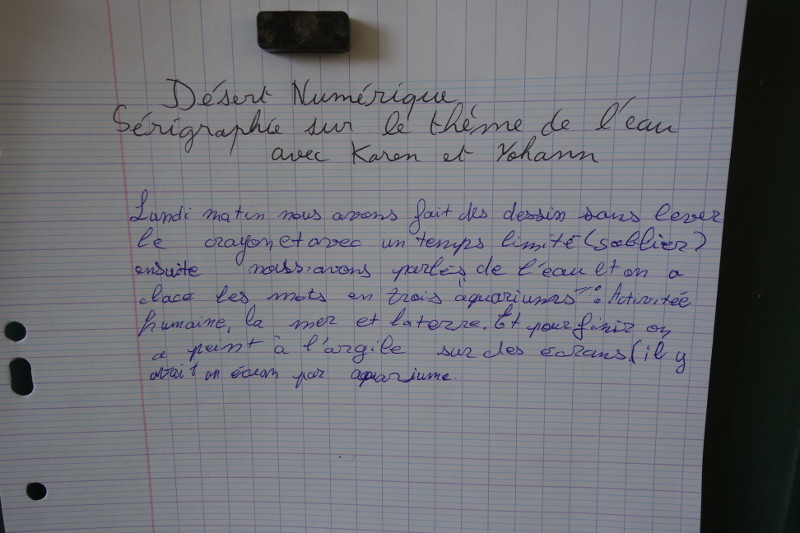 Désert Numérique
Sérigraphie sur le thème de l'eau
avec Karen et Yohann
Lundi matin nous avons fait des dessin sans lever
le crayon et avec un temps limité (sablier)
ensuite nous avons parlés de l'eau et on a
classé les mots en trois "aquariums" : Activitée
humaine, la mer et la terre. Et pour finir on
a peint à l'argile sur des écrans (il y
avait un écran par aquariume.